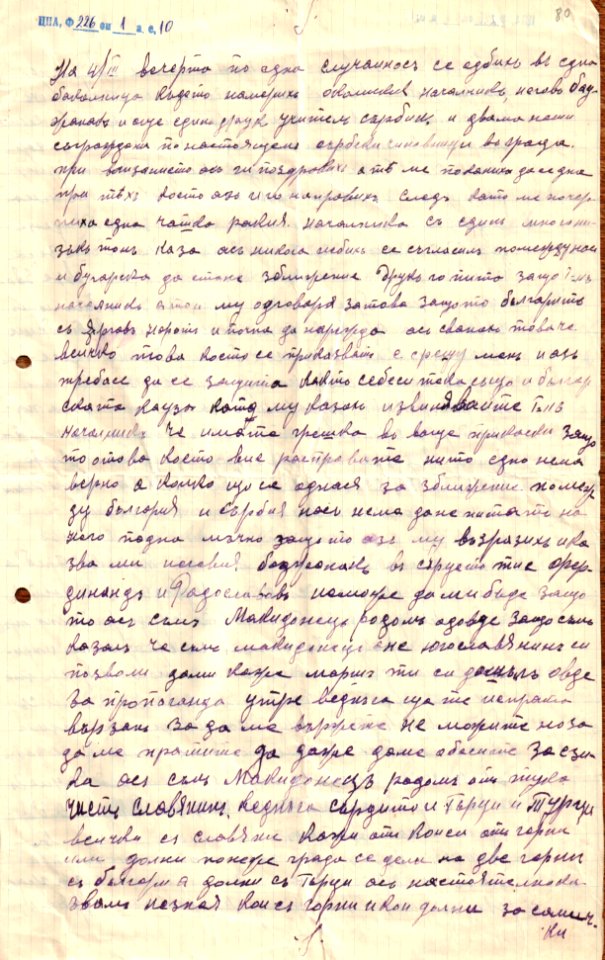 ЦПА, Ф 226 оп 1 а. е. 10
80
На 4/III вечерта по една случайносъ се едбихъ въ една
бакалница кадето намерихъ околиския началникъ, негово бад-
жанакъ и още единъ другъ учителъ сърбинъ и двама наши
съграждани по настоящемъ сърбски чиновници во града.
при влизанието азъ ги поздравихъ а те ме поканиха да седна
при тѣхъ което азъ и го направихъ следъ като ме почер-
пиха една чашка ракия. началника съ единъ многони-
зъкъ тонъ каза азъ никога небихъ се съгласилъ помежду нас
и бугарска да стане зближрение Другъ го пита защо Г-нъ
началникъ а той му одговаря затова защото българитъ
съ а народъ и почна да нарежда азъ сванахъ това че
всичко това което се приказватъ е срещу менъ и азъ
требаше да се защита както себеси така също и българ
ската кауза като му казахъ извинявайте Г-нъ
началникъ че имате грешка въ ваше приказки защо
то отова което вие растравяте нито едно нема
верно а колко що се однася за зближрение помеж
ду България и Сърбия насъ нема да не питатъ на
него падна мъчно защото азъ му възразихъ и ка
зва ми неговия баджанакъ въ сърцето ти е Фер-
динандъ и Радославовъ неможе да ми бъде защо
то азъ съмъ Македонецъ родомъ одовде защо съмъ
казалъ че съмъ македонецъ а не югославянинъ си
позволи дами каже маршъ ти си дошълъ овде
за пропаганда утре веднъга ща те испратя
вързанъ за да ме вържете не можите но за
да ме пратите да даже даме обесите за езика
азъ съмъ Македонецъ родомъ отъ тука
чисть славянинъ. веднъга сърдито и Гърци и Турци
всички съ славяне кажи отъ кои си отъ горни
или долни понеже града се дели на две горни
съ българи а долни съ Гърци азъ настоятелно ка
звамъ незная кои съ горни и кои долни
ки